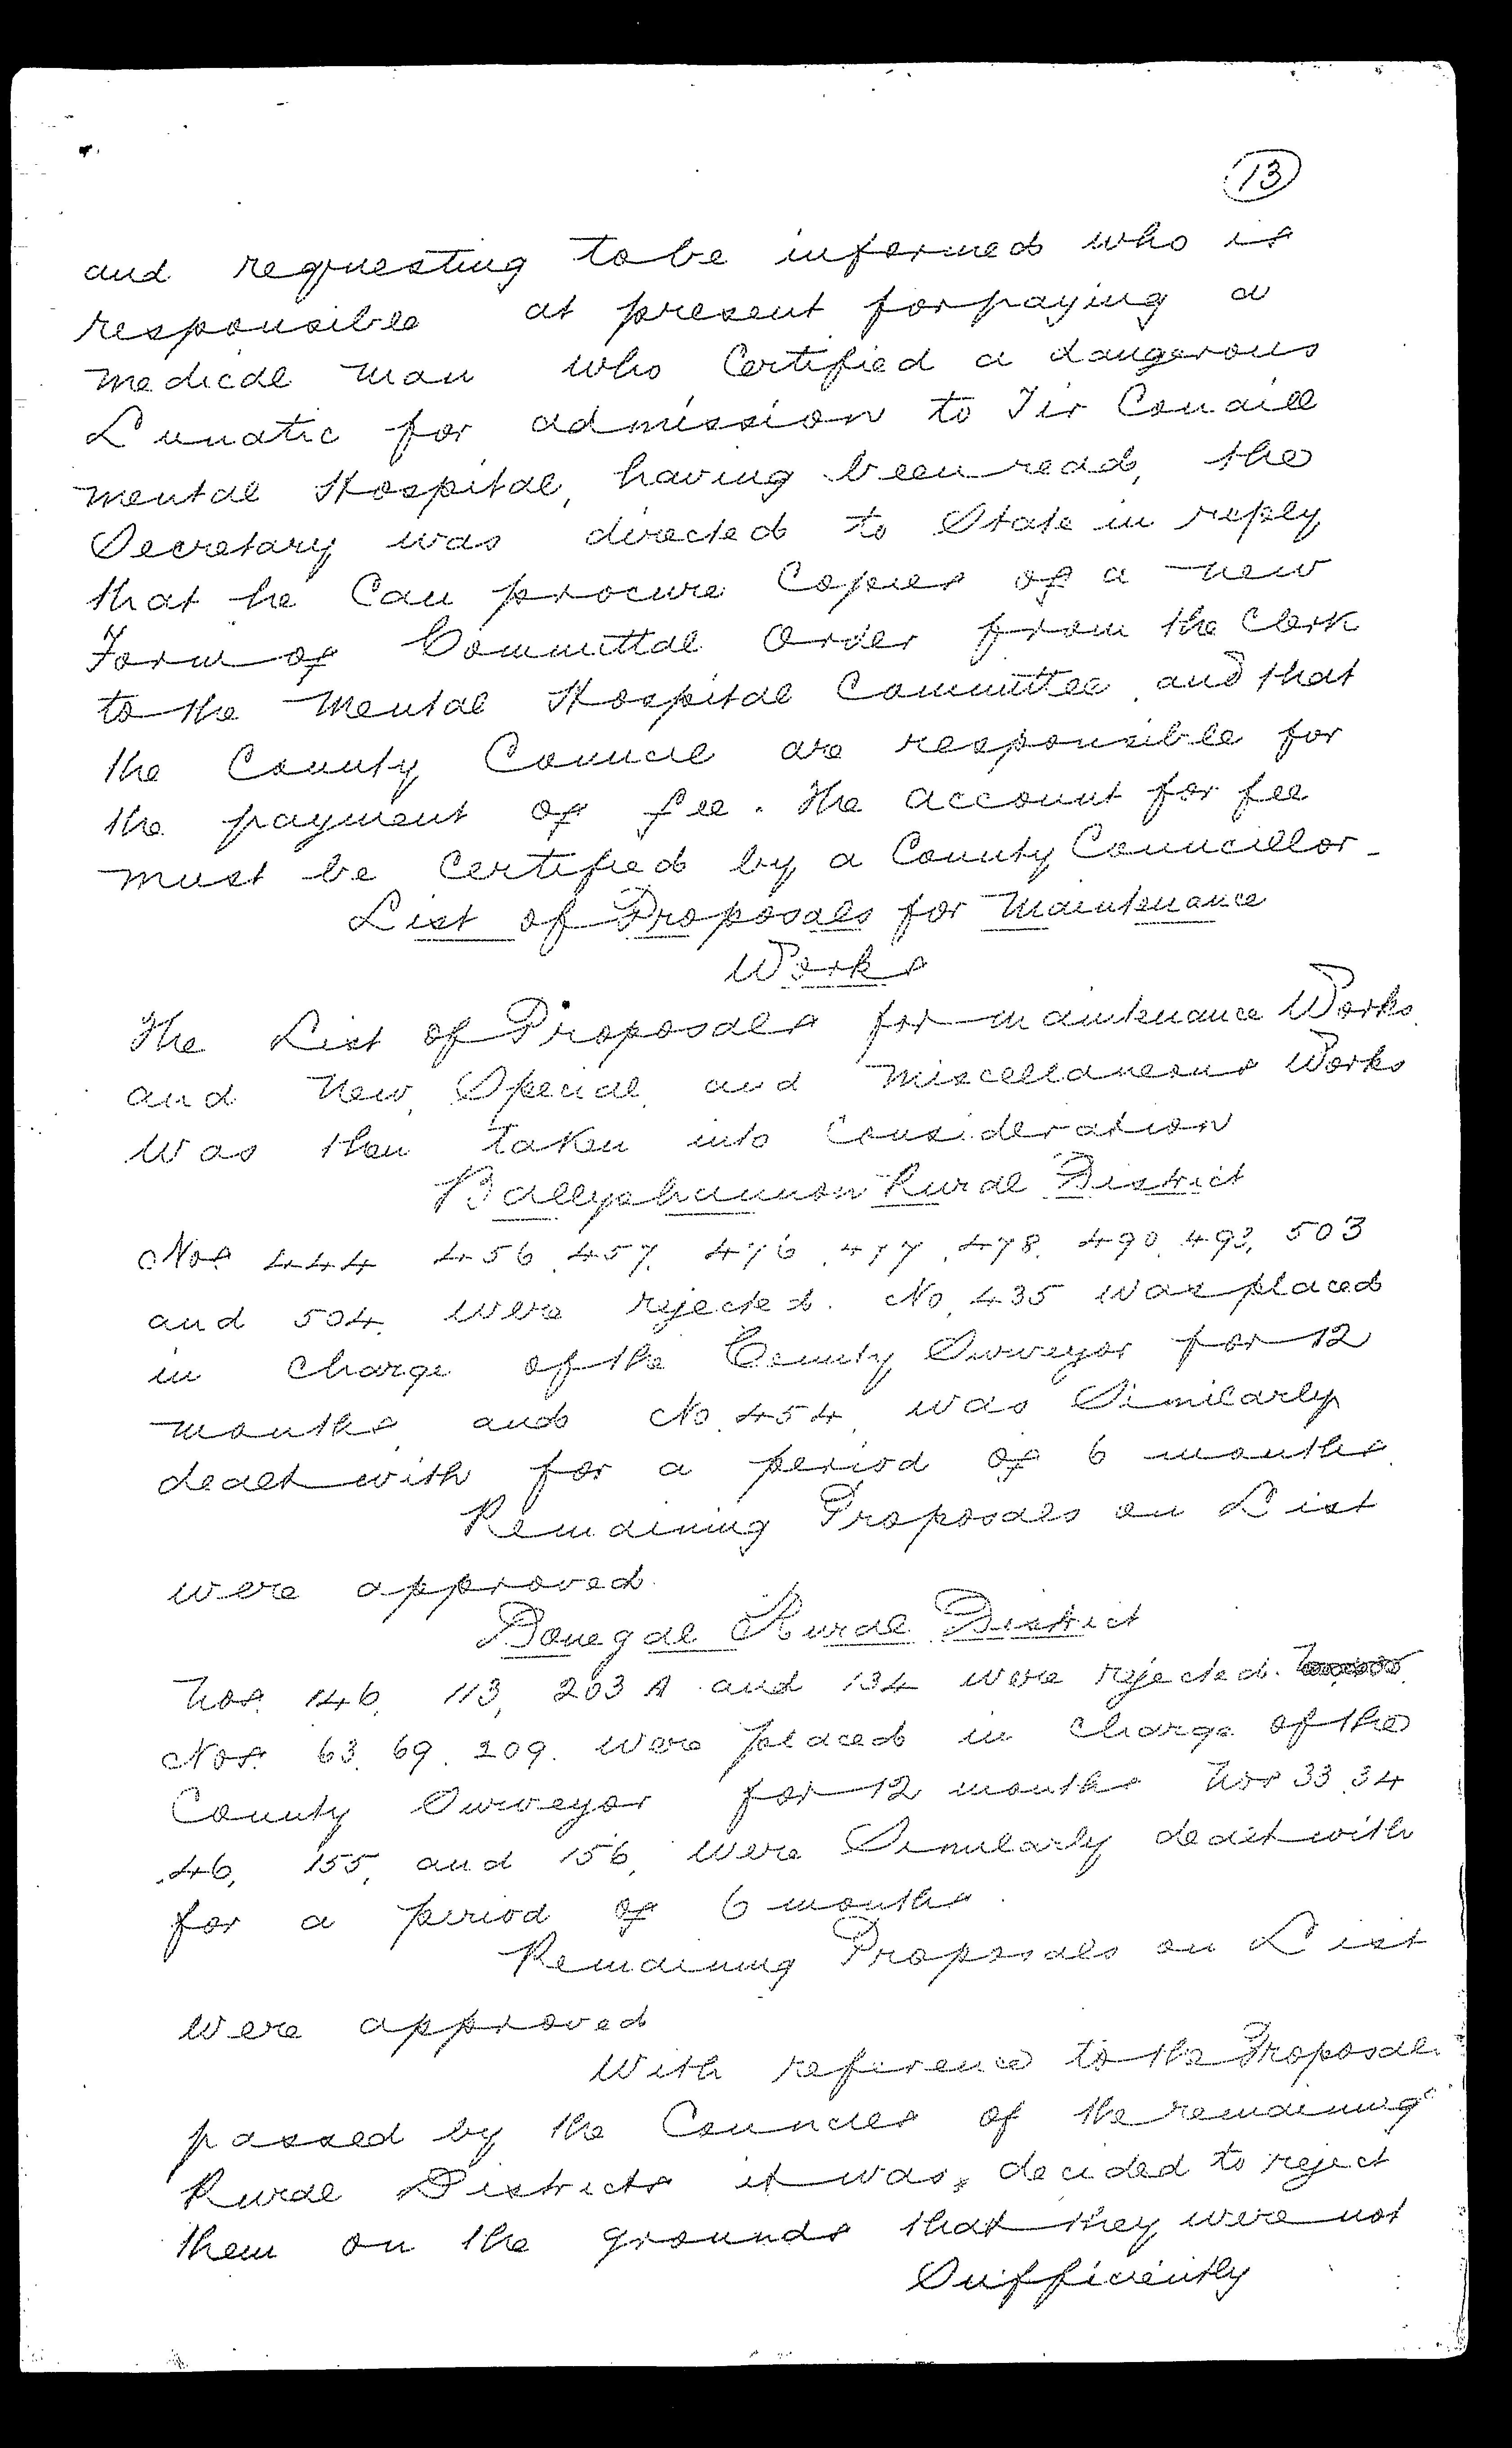 13
and requesting to be informed who is
responsible at present for paying a
medical man who Certified a dangerous
Lunatic for admission to Tir Conaill
Mental Hospital, having been read, the
Secretary was directed to State in reply
that he Can procure Copies of a new
Form of Committal Order from the Clerk
to the Mental Hospital Committee, and that
the County Council are responsible for
the payment of fee. The account for fee
must be Certified by a County Councillor.
List of Proposals for Maintenance
Works
The List of Proposals for Maintenance Works
and New, Special, and Miscellaneous Works
was then taken into Consideration
Ballyshannon Rural District
Nos. 444 456, 457, 476, 477, 478, 490, 493, 503
and 504, were rejected. No. 435 was placed
in Charge of the County Surveyor for 12
months, and No. 454, was Similarly
dealt with for a period of 6 months.
Remaining Proposals on List
were approved.
Donegal Rural District
Nos. 146, 113, 203A and 134 were rejected.
Nos. 63, 69, 209. were placed in Charge of the
County Surveyor for 12 months Nos 33, 34
46, 155, and 156, were Similarly dealt with
for a period of 6 months.
Remaining Proposals on List
were approved
With reference to the Proposals
passed by the Councils of the remaining
Rural Districts it was, decided to reject
them on the grounds that they were not
Sufficiently